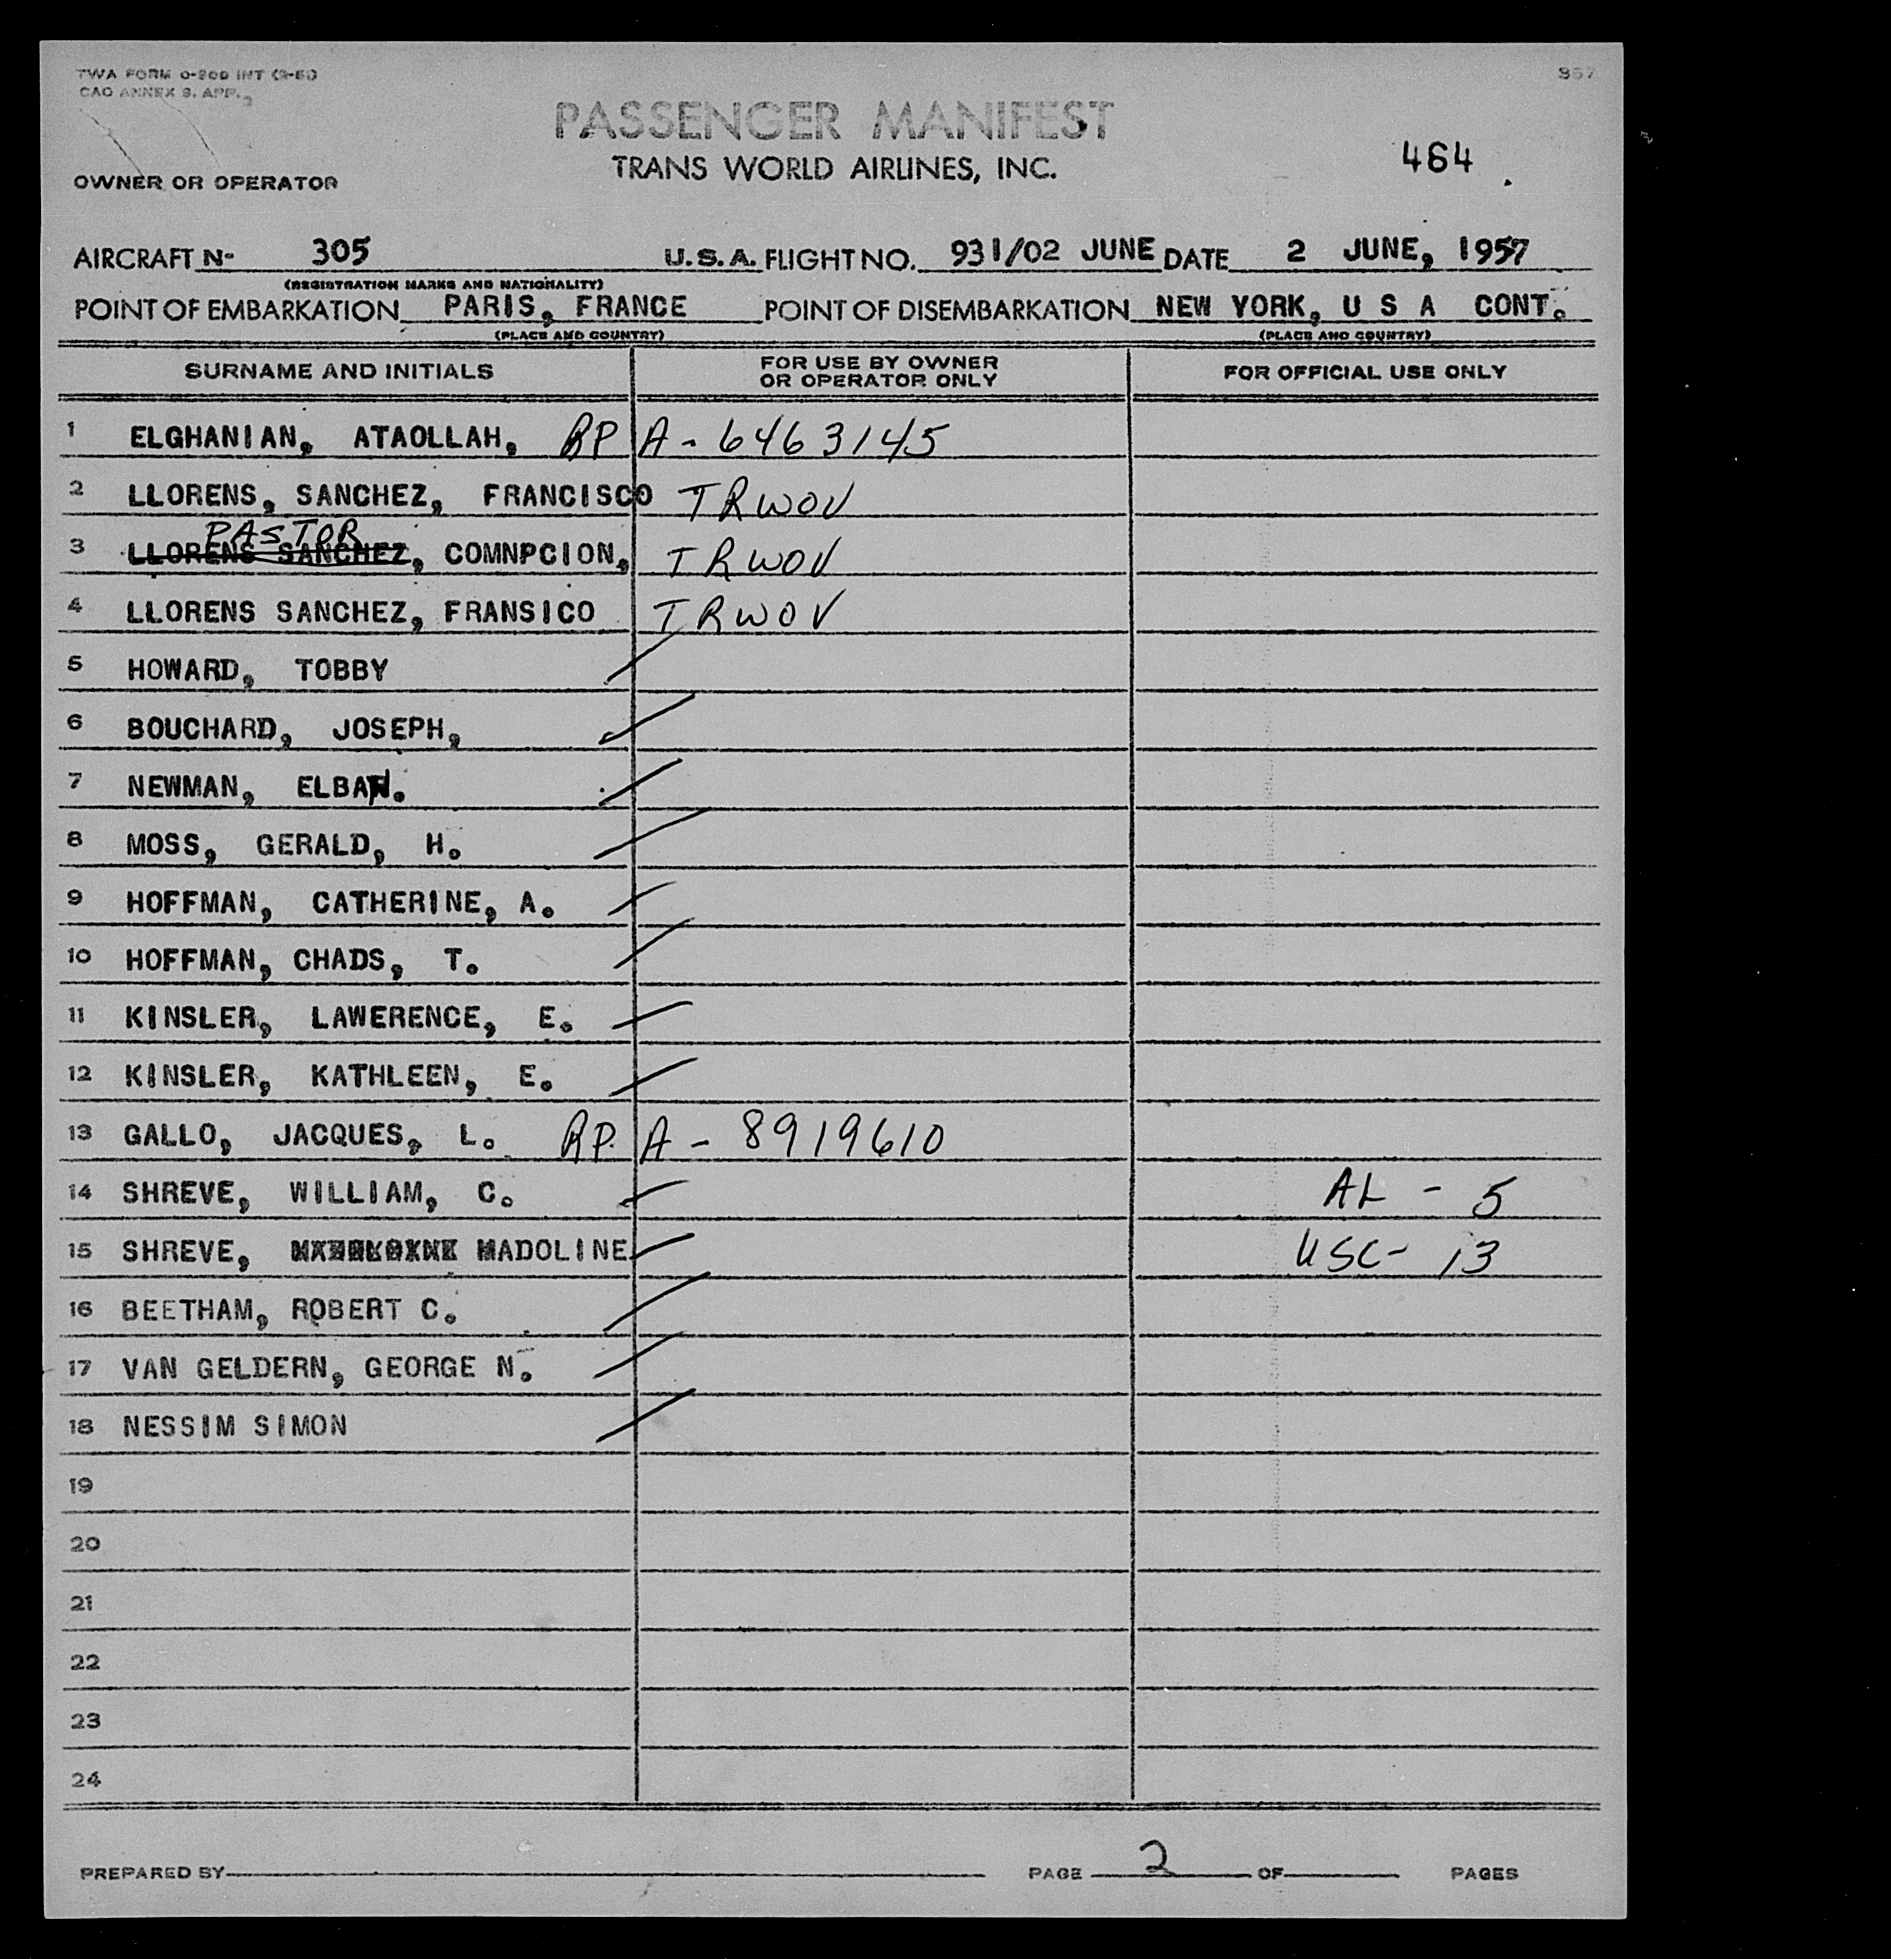 TWA FORM O-200 INT (3-51)
CAO ANNEX 9. APP. 3
957
PASSENGER MANIFEST
TRANS WORLD AIRLINES, INC.
464
OWNER OR OPERATOR
AIRCRAFT N- 305 U.S.A. FLIGHT NO. 931/02 JUNE DATE 2 JUNE, 1957
(REGISTRATION MARKS AND NATIONALITY)
POINT OF EMBARKATION PARIS, FRANCE POINT OF DISEMBARKATION NEW YORK, U S A CONT.
(PLACE AND COUNTRY) (PLACE AND COUNTRY)
SURNAME AND INITIALS FOR USE BY OWNER OR OPERATOR ONLY FOR OFFICIAL USE ONLY
1 ELGHANIAN, ATAOLLAH, RP A-6463145
2 LLORENS, SANCHEZ, FRANCISCO TRWOV
PASTOR
3 LLORENS SANCHEZ, COMNPCION, TRWOV
4 LLORENS SANCHEZ, FRANSICO TRWOV
5 HOWARD, TOBBY
6 BOUCHARD, JOSEPH,
7 NEWMAN, ELBAN.
8 MOSS, GERALD, H.
9 HOFFMAN, CATHERINE, A.
10 HOFFMAN, CHADS, T.
11 KINSLER, LAWERENCE, E.
12 KINSLER, KATHLEEN, E.
13 GALLO, JACQUES, L. RP. A-8919610
14 SHREVE, WILLIAM, C. AL - 5
15 SHREVE, MADOLINE USC- 13
16 BEETHAM, ROBERT C.
17 VAN GELDERN, GEORGE N.
18 NESSIM SIMON
19
20
21
22
23
24
PREPARED BY PAGE 2 OF PAGES